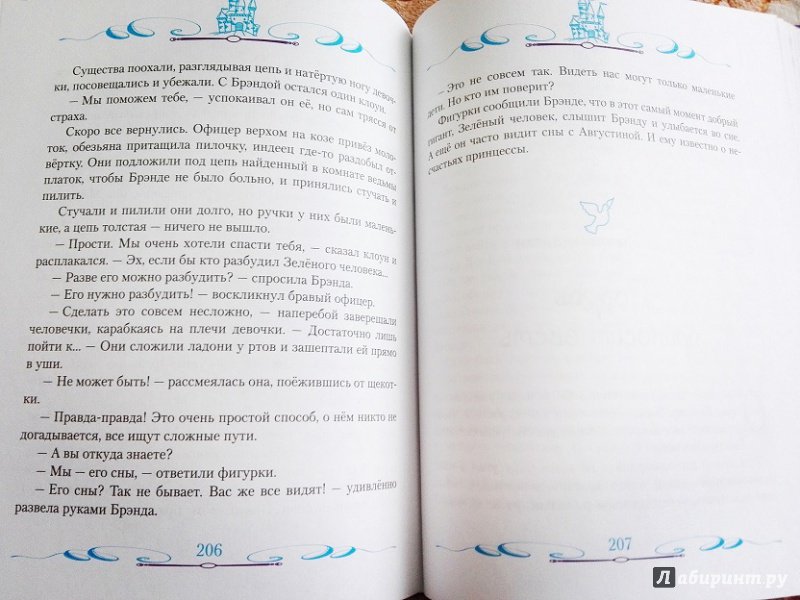 Существа поохали, разглядывая цепь и натёртую ногу девоч-
ки, посовещались и убежали. С Брэндой остался один клоун.
— Мы поможем тебе, — успокаивал он её, но сам трясся от
страха.
Скоро все вернулись. Офицер верхом на козе привёз моло-
ток, обезьяна притащила пилочку, индеец где-то раздобыл от-
вёртку. Они подложили под цепь найденный в комнате ведьмы
платок, чтобы Брэнде не было больно, и принялись стучать и
пилить.
Стучали и пилили они долго, но ручки у них были малень-
кие, а цепь толстая — ничего не вышло.
— Прости. Мы очень хотели спасти тебя, — сказал клоун и
расплакался. — Эх, если бы кто разбудил Зелёного человека...
— Разве его можно разбудить? — спросила Брэнда.
— Его нужно разбудить! — воскликнул бравый офицер.
— Сделать это совсем несложно, — наперебой заверещали
человечки, карабкаясь на плечи девочки. — Достаточно лишь
пойти к... — Они сложили ладони у ртов и зашептали ей прямо
в уши.
— Не может быть! — рассмеялась она, поёжившись от щекот-
ки.
— Правда-правда! Это очень простой способ, о нём никто не
догадывается, все ищут сложные пути.
— А вы откуда знаете?
— Мы — его сны, — ответили фигурки.
— Его сны? Так не бывает. Вас же все видят! — удивлённо
развела руками Брэнда.
206
— Это не совсем так. Видеть нас могут только маленькие
дети. Но кто им поверит?
Фигурки сообщили Брэнде, что в этот самый момент добрый
гигант, Зелёный человек, слышит Брэнду и улыбается во сне.
А ещё он часто видит сны с Августиной. И ему известно о не-
счастьях принцессы.
207
Лабиринт.ру